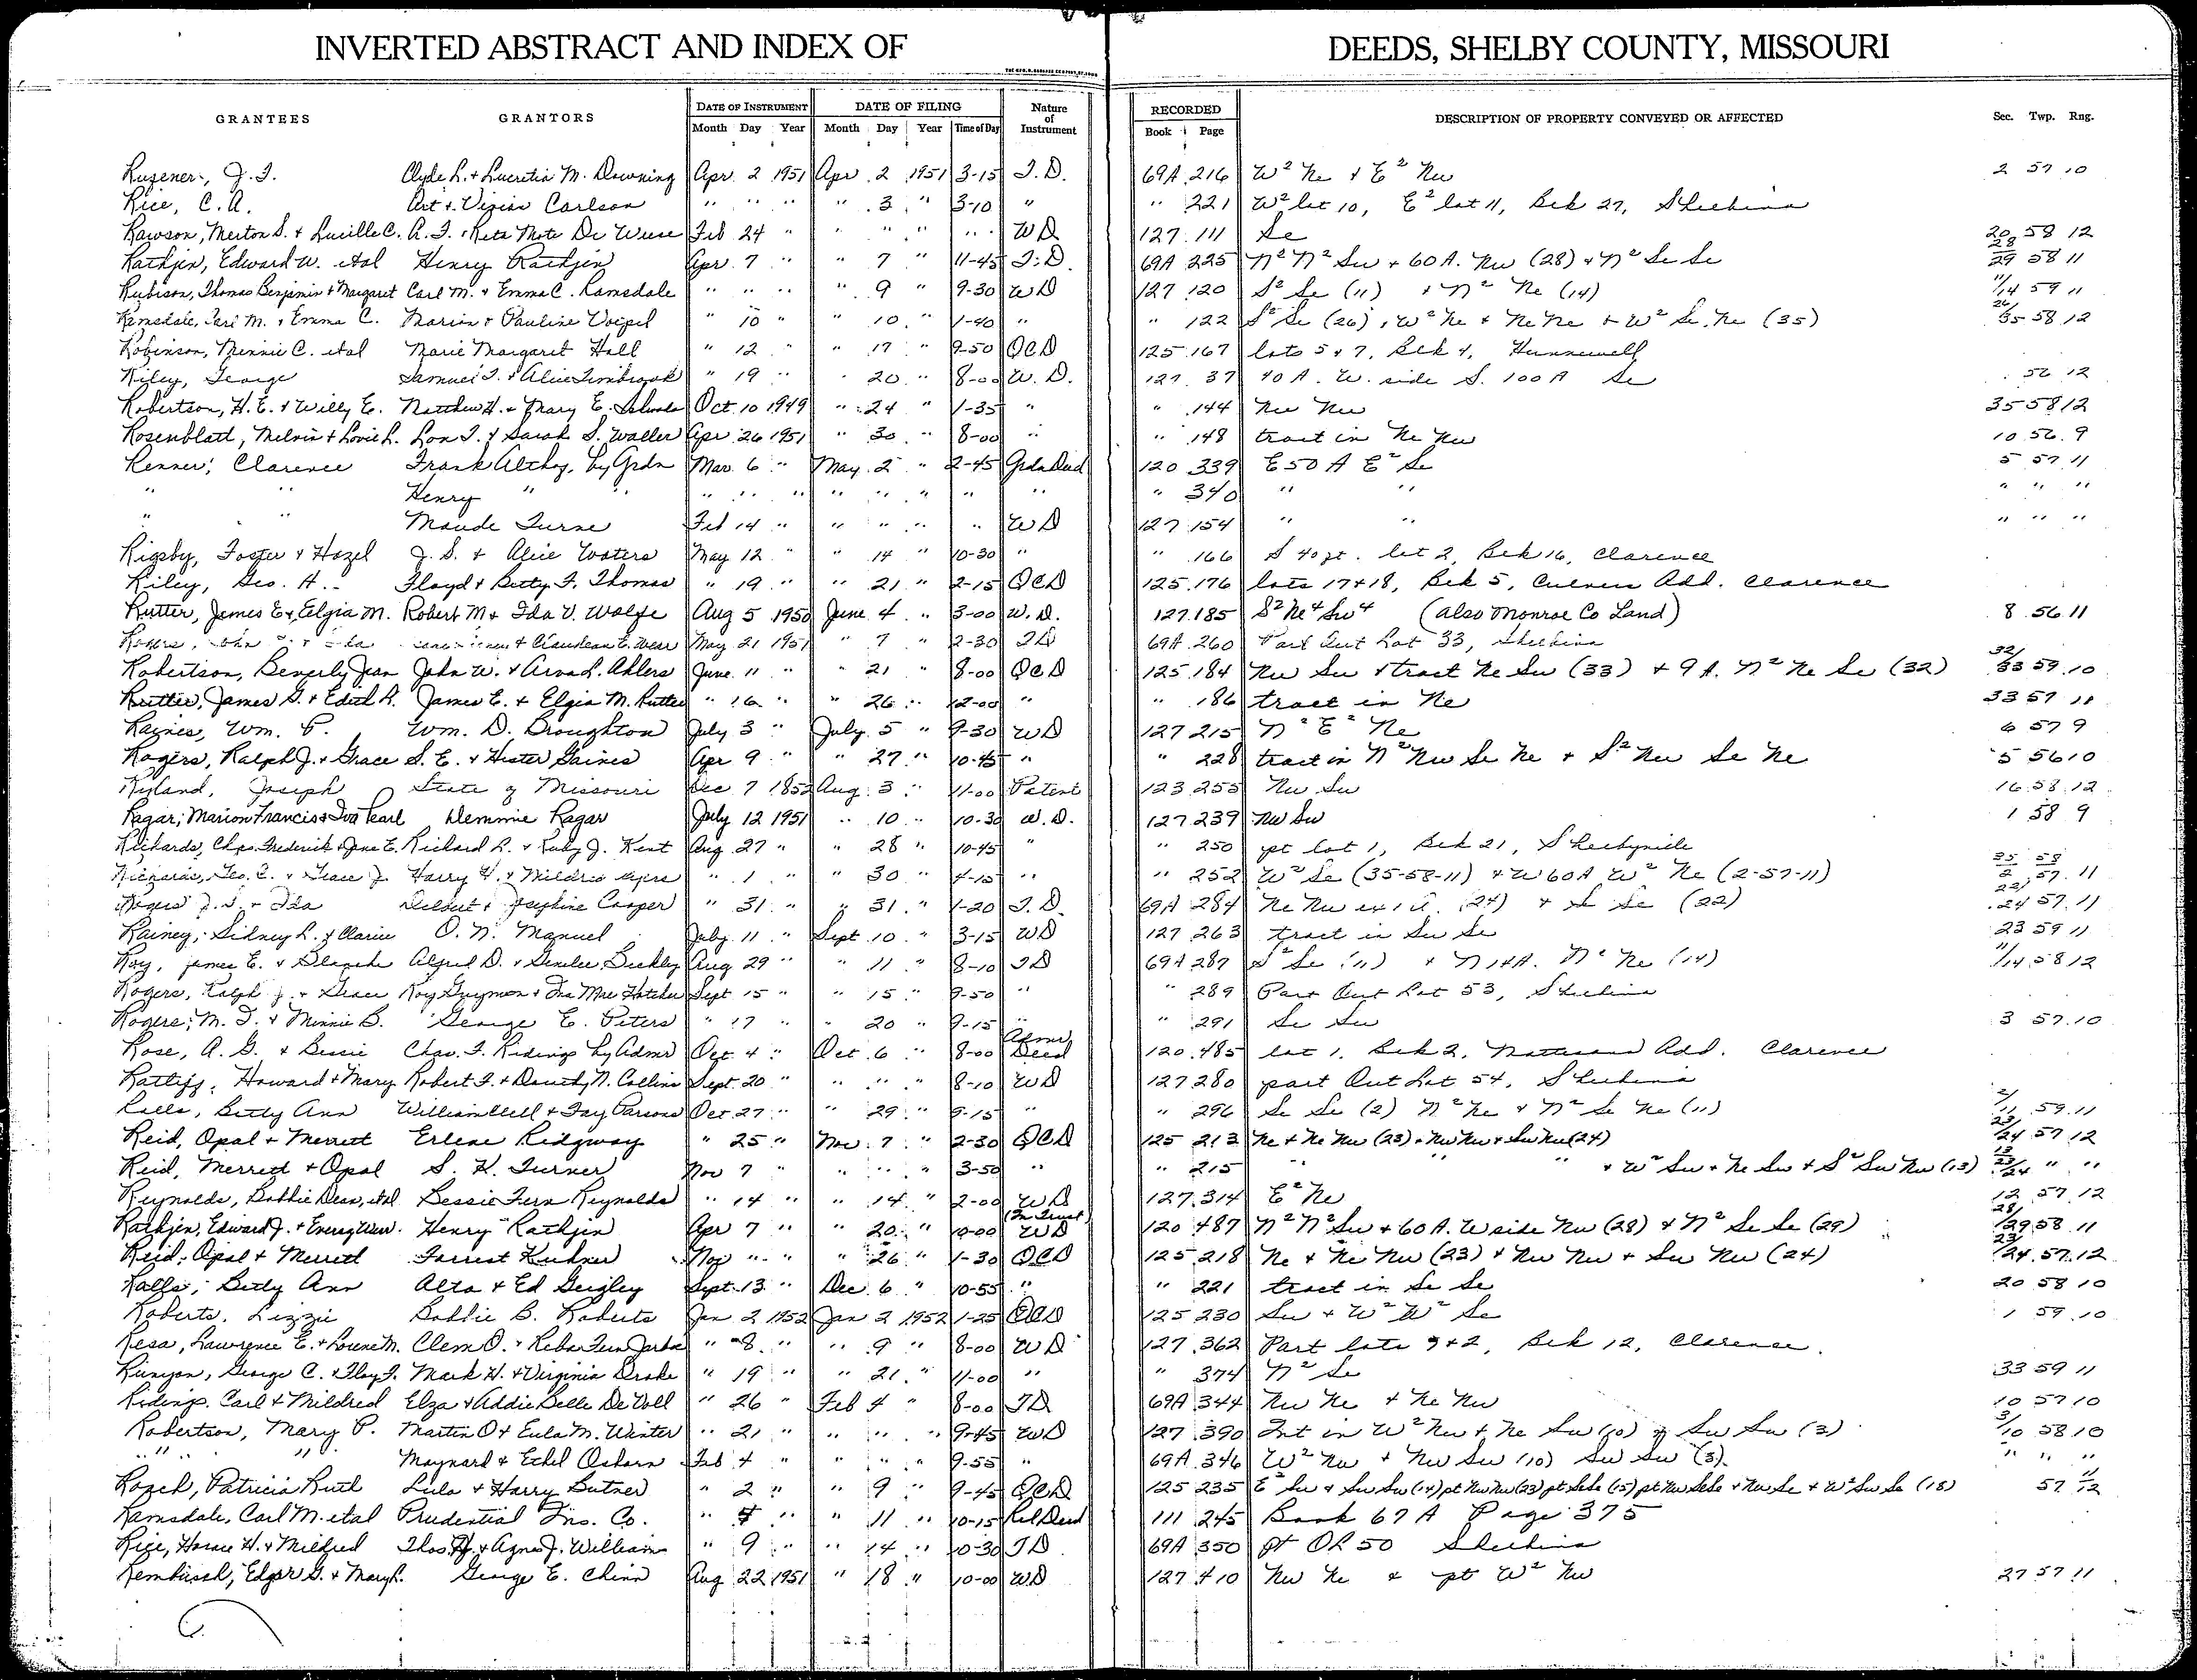 INVERTED ABSTRACT AND INDEX OF DEEDS, SHELBY COUNTY, MISSOURI
GRANTEES GRANTORS DATE OF INSTRUMENT DATE OF FILING Nature of Instrument RECORDED DESCRIPTION OF PROPERTY CONVEYED OR AFFECTED Sec. Twp. Rng.
Month Day Year Month Day Year Time of Day Book Page
J. T. Clyde L. + Lucretia M. Downing Apr. 2 1951 Apr 2 1951 3-15 T.D. 69A 216 W² Ne + E² Nw 2 57 10
Rice, C. A. Art + Vivian Carlson " " " " 3 " 3-10 " " 221 W² lot 10, E² lot 11, Blk 27, Shelbina
Rawson, Merton S. + Lucille C. A. T. + Reta De Weese Feb 24 " " " " " WD 127 111 Se 20 58 12
Rathjen, Edward W. etal Henry Rathjen Apr. 7 " " 7 " 11-45 T.D. 69A 225 N² N² Sw + 60 A. Nw (28) + N² Se Se 28/29 58 11
Rubison, Thomas Benjamin + Margaret Carl M. + Emma C. Ramsdale " " " " 9 " 9-30 WD 127 120 S² Se (11) + N² Ne (14) 11/14 59 11
Ramsdale, Carl M. + Emma C. Marion + Pauline Voepel " 10 " " 10 " 1-40 " " 122 S² Se (26), W² Ne + Ne Ne + W² Se Ne (35) 26/35 58 12
Robinson, Minnie C. etal Marie Margaret Hall " 12 " " 17 " 9-50 QCD 125 167 lots 5 + 7, Blk 4, Hunnewell
Riley, George Samuel T. + Alice Timbrook " 19 " " 20 " 8-00 W.D. 127 37 40 A. W. side S. 100 A Se 56 12
Robertson, H. E. + Willy E. Matthew H. + Mary E. Oct. 10 1949 " 24 " 1-35 " " 144 Nw Nw 35 58 12
Rosenblatt, Melvin + Lovie L. Lon T. + Sarah S. Waller Apr 26 1951 " 30 " 8-00 " " 148 tract in Ne Nw 10 56 9
Renner, Clarence Frank Althoj, by Grdn Mar. 6 " May 2 " 2-45 Grdn Deed 120 339 E 50 A E² Se 5 57 11
" " Henry " " " " " " " " " " " 340 " " " " "
" " Maude Turner Feb 14 " " " " " WD 127 154 " " " " "
Rigsby, Foster + Hazel J. S. + Alice Waters May 12 " " 14 " 10-30 " " 166 S 40 ft. lot 2, Blk 16, Clarence
Riley, Geo. H. Floyd + Betty F. Thomas " 19 " " 21 " 2-15 QCD 125 176 lots 17+18, Blk 5, Culvers Add. Clarence
Rutter, James E + Elgia M. Robert M + Ida V. Wolfe Aug 5 1950 June 4 " 3-00 W.D. 127 185 S² Ne⁴ Sw⁴ (also Monroe Co Land) 8 56 11
Rogers, John + Ida + Claudean E. Wear May 21 1951 " 7 " 2-30 TD 69A 260 Part Out Lot 33, Shelbina
Robertson, Beverly Jean John W. + Arva L. Ahlers June 11 " " 21 " 8-00 QCD 125 184 Nw Sw + tract Ne Sw (33) + 9 A. N² Ne Se (32) 32/33 59 10
Rutter, James G. + Edith A. James E. + Elgia M. Rutter " 16 " " 26 " 12-00 " " 186 tract in Ne 33 57 11
Raines, Wm. P. Wm. D. Broughton July 3 " July 5 " 9-30 WD 127 215 N² E² Ne 6 57 9
Rogers, Ralph J. + Grace S. E. + Hester Gaines Apr 9 " " 27 " 10-45 " " 228 tract in N² Nw Se Ne + S² Nw Se Ne 5 56 10
Ryland, Joseph State of Missouri Dec 7 1852 Aug. 3 " 11-00 Patent 123 255 Nw Sw 16 58 12
Ragar, Marion Francis + Iva Pearl Demmie Ragar July 12 1951 " 10 " 10-30 W.D. 127 239 NW SW 1 58 9
Richards, Chas. Frederick + Jane E. Richard L. + Ruby J. Kent Aug. 27 " " 28 " 10-45 " " 250 pt lot 1, Blk 21, Shelbyville
Richards, Geo. E. + Grace J. Harry H. + Mildred " 1 " " 30 " 4-15 " " 252 W² Se (35-58-11) + W 60A W² Ne (2-57-11) 35 58 / 2 57 11
Rogers J. T. + Ida Delbert + Josephine Cooper " 31 " " 31 " 1-20 T.D. 69A 284 Ne Nw ex 1 A. (24) + Se Se (22) 22/24 57 11
Rainey, Sidney L. + Clarice O. N. Manuel July 11 " Sept 10 " 3-15 WD 127 263 tract in Sw Se 23 59 11
Roy, James E. + Blanche Alfred D. + Bickley Aug 29 " " 11 " 8-10 TD 69A 287 S² Se (11) + N 14A. N² Ne (14) 11/14 58 12
Rogers, Ralph J. + Grace Roy Guymon + Ina Mae Hatcher Sept 15 " " 15 " 9-50 " " 289 Part Out Lot 53, Shelbina
Rogers, M. T. + Minnie B. George E. Peters " 17 " " 20 " 9-15 " " 291 Se Sw 3 57 10
Rose, A. G. + Bessie Chas. F. Ridings by Admr Oct. 4 " Oct. 6 " 8-00 Admr Deed 120 485 lot 1, Blk 2, Add. Clarence
Ratliff, Howard + Mary Robert F. + Dorothy N. Collins Sept. 20 " " " " 8-10 WD 127 280 part Out Lot 54, Shelbina
Ralls, Betty Ann William + Fay Parsons Oct. 27 " " 29 " 9-15 " " 296 Se Se (2) N² Ne + N² Se Ne (11) 2/11 59 11
Reid, Opal + Merrett Erlene Ridgway " 25 " Nov. 7 " 2-30 QCD 125 213 Ne + Ne Nw (23) + Nw Nw + Sw Nw (24) 23/24 57 12
Reid, Merrett + Opal S. K. Turner Nov 7 " " " " 3-50 " " 215 " " + W² Sw + Ne Sw + S² Sw Nw (13) 13/23/24 " "
Reynolds, Bobbie Dean, etal Bessie Fern Reynolds " 14 " " 14 " 2-00 WD 127 314 E² Ne 12 57 12
Rathjen, Edward J. + Henry Rathjen Apr 7 " " 20 " 10-00 (In Trust) WD 120 487 N² N² Sw + 60 A. W side Nw (28) + N² Se Se (29) 28/29 58 11
Reid, Opal + Merrett Forrest Nov " " " 26 " 1-30 QCD 125 218 Ne + Ne Nw (23) + Nw Nw + Sw Nw (24) 23/24 57 12
Ralls, Betty Ann Alta + Ed Geigley Sept. 13 " Dec 6 " 10-55 " " 221 tract in Se Se 20 58 10
Roberts, Lizzie Bobbie B. Roberts Jan 2 1952 Jan 2 1952 1-25 QCD 125 230 Sw + W² W² Se 1 59 10
Resa, Lawrence E. + Clem O. + Reba Fern " 8 " " 9 " 8-00 WD 127 362 Part lots + 2, Blk 12, Clarence.
Runyon, George C. + Floy F. Mark H. + Virginia Drake " 19 " " 21 " 11-00 " " 374 N² Se 33 59 11
Ridings, Carl + Mildred Elza + Addie Belle De Voll " 26 " Feb 4 " 8-00 TD 69A 344 Nw Ne + Ne Nw 10 57 10
Robertson, Mary P. Martin O + Eula M. Winter " 21 " " " " 9-45 WD 127 390 Int in W² Nw + Ne Sw (10) Sw Sw (3) 3/10 58 10
" " Maynard + Ethel Osborn Feb 4 " " " " 9-55 " 69A 346 W² Nw + Nw Sw (10) Sw Sw (3). " " "
Roach, Patricia Ruth Lula + Harry Butner " 2 " " 9 " 9-45 QCD 125 235 E² Sw + Sw Sw (14) pt Nw Nw (23) pt SeSe (15) pt Nw SeSe + Nw Se + W² Sw Se (18) 57 11/12
Ramsdale, Carl M. etal Prudential Ins. Co. " 5 " " 11 " 10-15 Rel Deed 111 245 Book 67 A Page 375
Rice, Horace H. + Mildred Thos. H. + Agnes J. William " 9 " " 14 " 10-30 TD 69A 350 pt OL 50 Shelbina
Rembusch, Edgar G. + Mary L. George E. Chinn Aug 22 1951 " 18 " 10-00 WD 127 410 Nw Ne + pt W² Nw 27 57 11